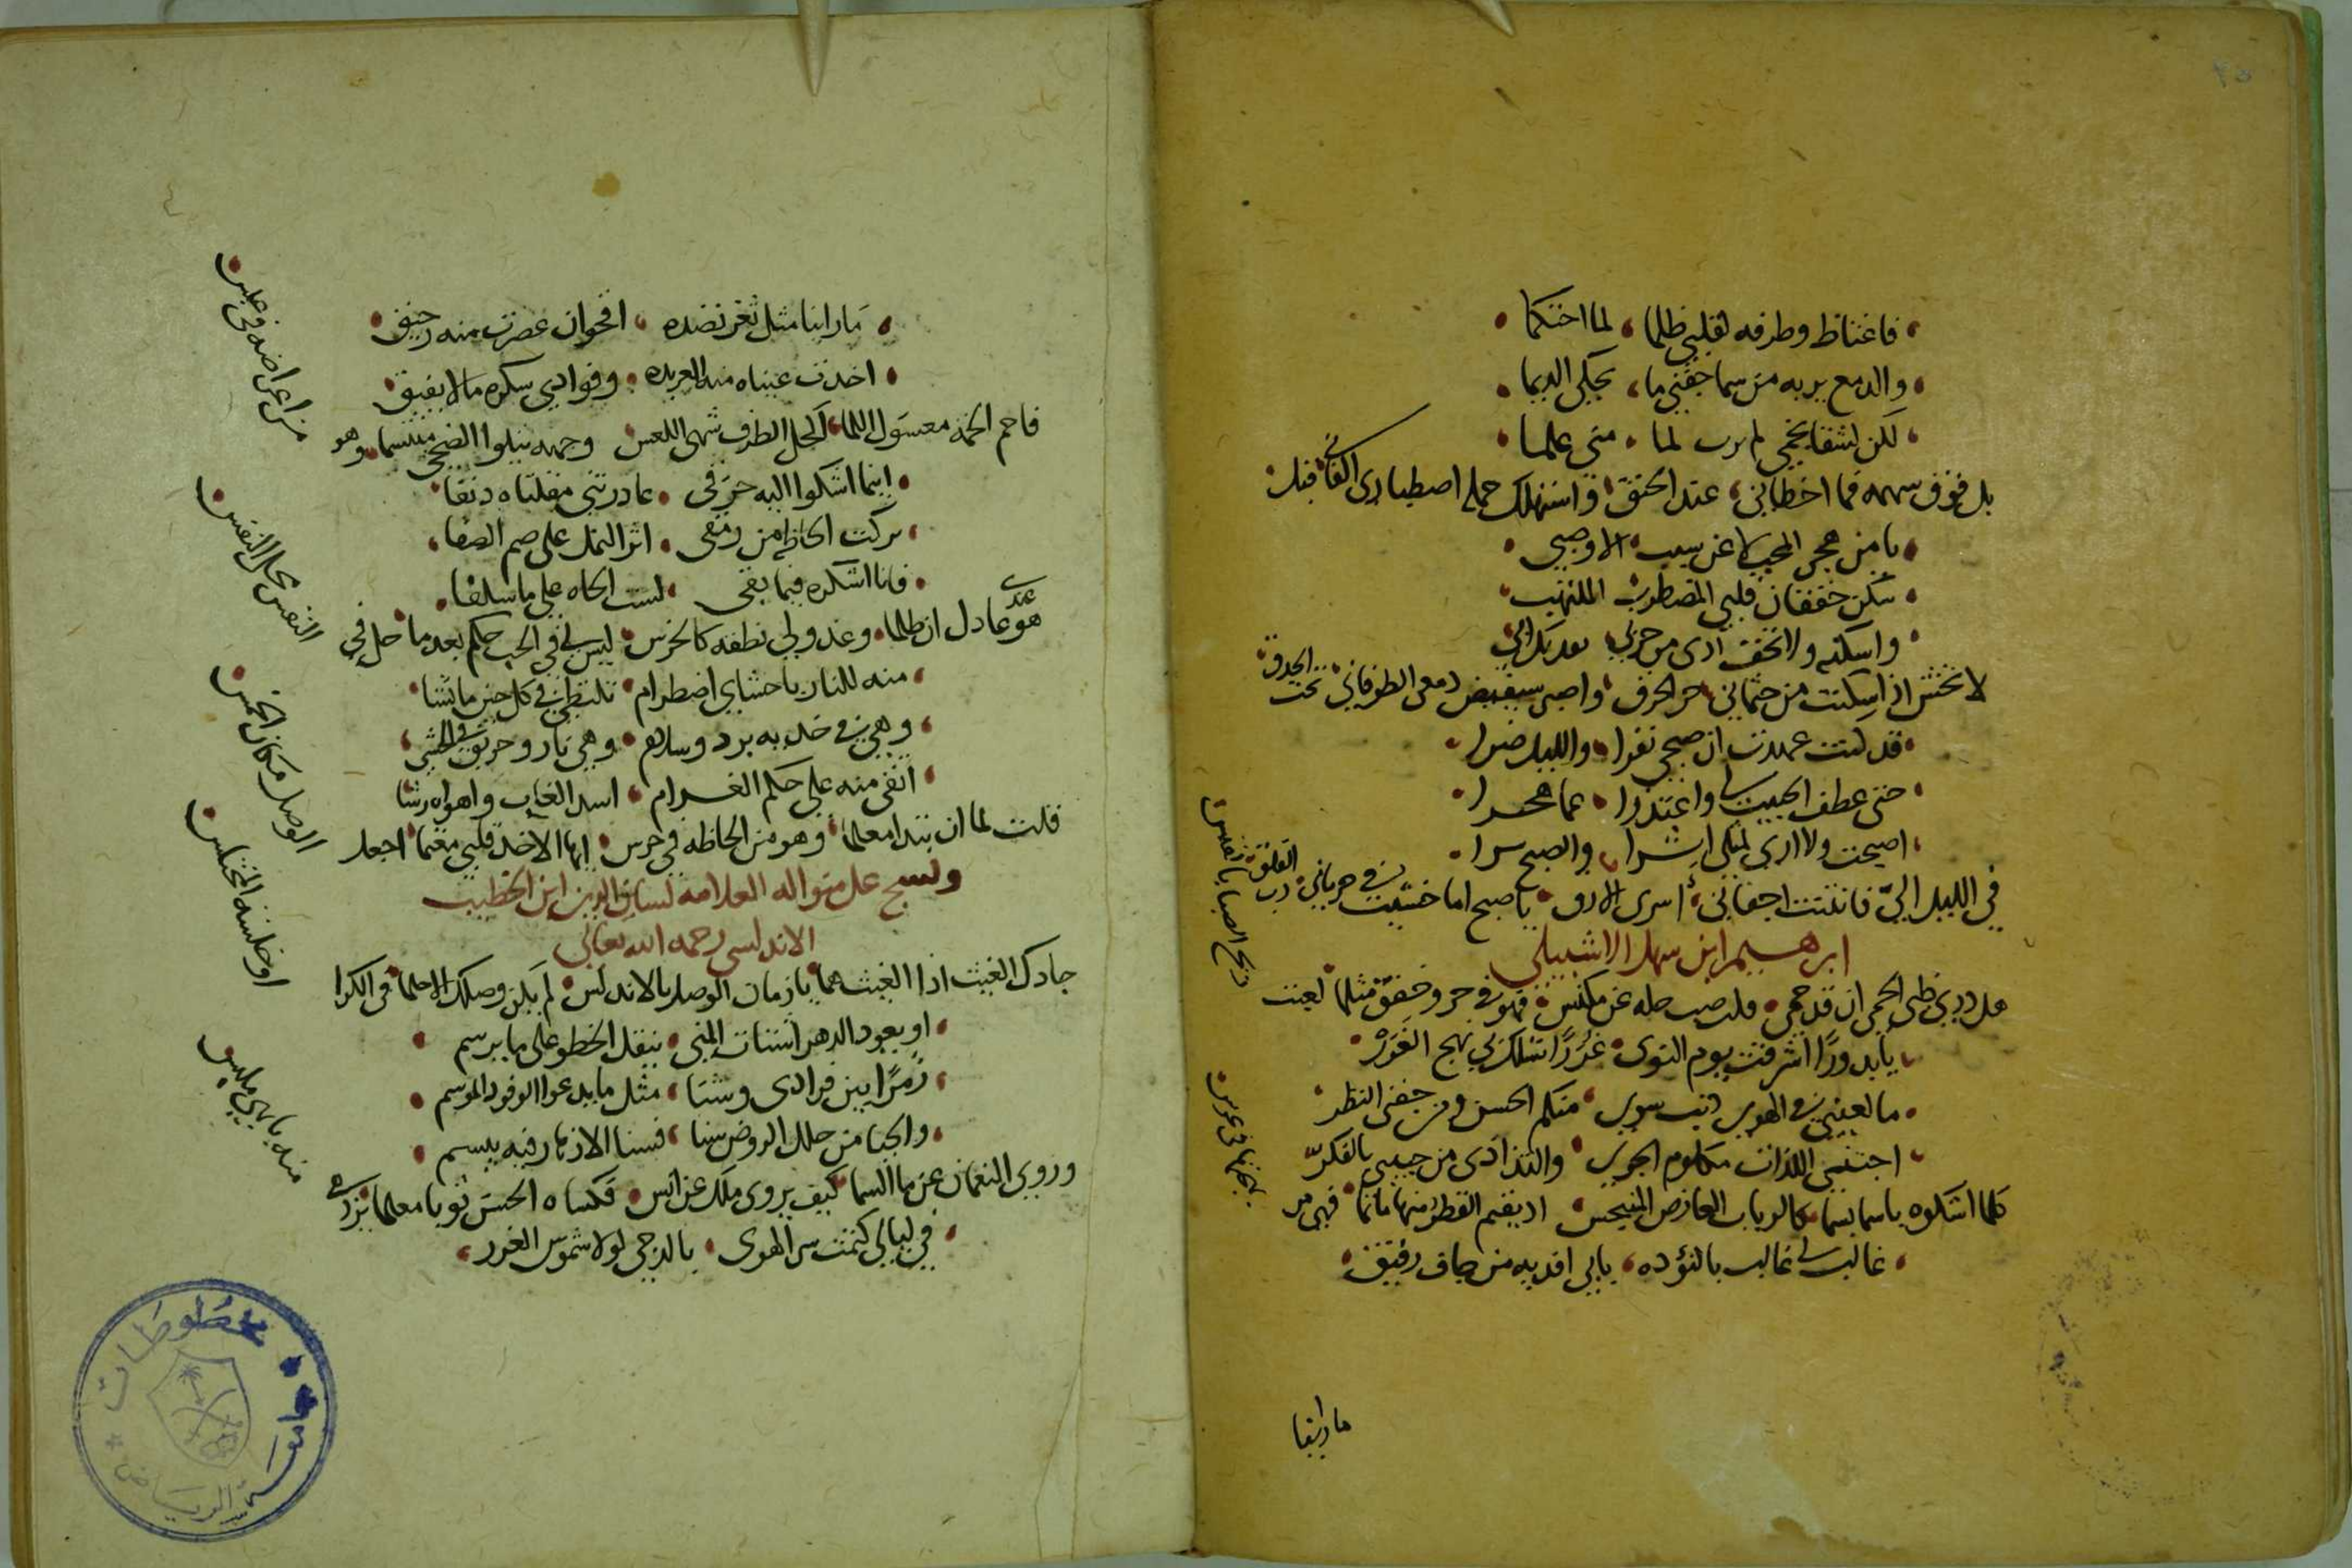 فاغتاظ وطرفه لقلبي ظلما لما احتكما
والدمع يربه من سما جفني ما يحكي الديما
لكن لشقا نجمي لم لما مني علما
بل فوق سهمه فما اخطاني عند الحنق واستهلك حملي اصطباري الفاني قبل
يا من هجر المحب لا عن سبب الا وصبي
سكن خفقان قلبي المضطرب الملتهب
واسكنه ولا تخف اذى من حربي بعد بك ابي
لا تخش اذا سكنت من جثماني حر الحرق واصبر سيفيض دمعي الطوفاني تحت الحدق
قد كنت عهدت ان صبحي نفرا والليل ضرا
حتى عطف الحبيب لي واعتذرا عما هجرا
اصبحت ولا ارى لمثلي اشرا والصبح سرا
في الليل الي فانثنت اجفاني اسرى الارق يا صبح اما خشيت في رب الفلق
ابرهيم ابن سهل الاشبيلي
هل درى ظبي الحمى ان قد حمى قلب صب حله عن مكنس فهو في حر وخفق مثلما لعبت
ريح الصبا بالقبس
يا بدورًا اشرقت يوم النوى غررًا تسلك بي نهج الغرر
ما لعيني في الهوى ذنب سوى منكم الحسن ومن جفني النظر
اجتني اللذات مكلوم الجوى والتذاذي من حبيبي بالفكر
كلما اشكوه باسما بسما كالرباب العارض المنبجس اذ يقيم القطر منها ماتما فهي من
بهجتها في عرس
غالب لي غالب بالتؤده بابي افديه من جاف رقيق
ما راينا
ما راينا مثل ثغر نضده اقحوان عصرت منه رحيق
اخذت عيناه منه العربده وفوادي سكره ما لا يفيق
فاحم الجمه معسول اللما اكحل الطرف شهي اللعس وجهه يتلوا الضحى مبتسما وهو
من اعراضه في عبس
ايها اشكوا اليه حرقي غادرتني مقلتاه دنفا
تركت الحاظه من رمقي اثر النمل على صم الصفا
فانا اشكره فيما بقي لست الحاه على ما سلفا
هو عندي عادل ان ظلما وعذولي نطقه كالخرس ليس لي في الحب حكم بعدما حل في
النفس محل النفس
منه للنار باحشاي اضطرام تلتظي في كل حين ما تشا
وهي في خديه برد وسلام وهي نار وحريق في الحشى
اتقي منه على حكم الغرام اسد الغاب واهواه رشا
قلت لما ان تبدا معلما وهو من الحاظه في حرس ايها الاخذ قلبي مغنما اجعل
الوصل مكان الخمس
ونسج على منواله العلامه لسان الدين ابن الخطيب
الاندلسي رحمه الله تعالى
جادك الغيث اذا الغيث هما يا زمان الوصل بالاندلس لم يكن وصلك الا حلما في الكرا
او خلسة المختلس
او يعود الدهر اشتات المنى ينقل الخطو على ما يرسم
زمرًا بين فرادى وثنا مثل ما يدعوا الوفود الموسم
والحيا من جلل الروض سنا فسنا الازهار فيه يبسم
وروى النعمان عن ما السما كيف يروي ملك عن انس فكساه الحسن ثوبا معلما يزدهي
منه بابهى ملبس
في ليالي كتمت سر الهوى بالدجى لولا شموس الغرر
جامعة الرياض
مخطوطات